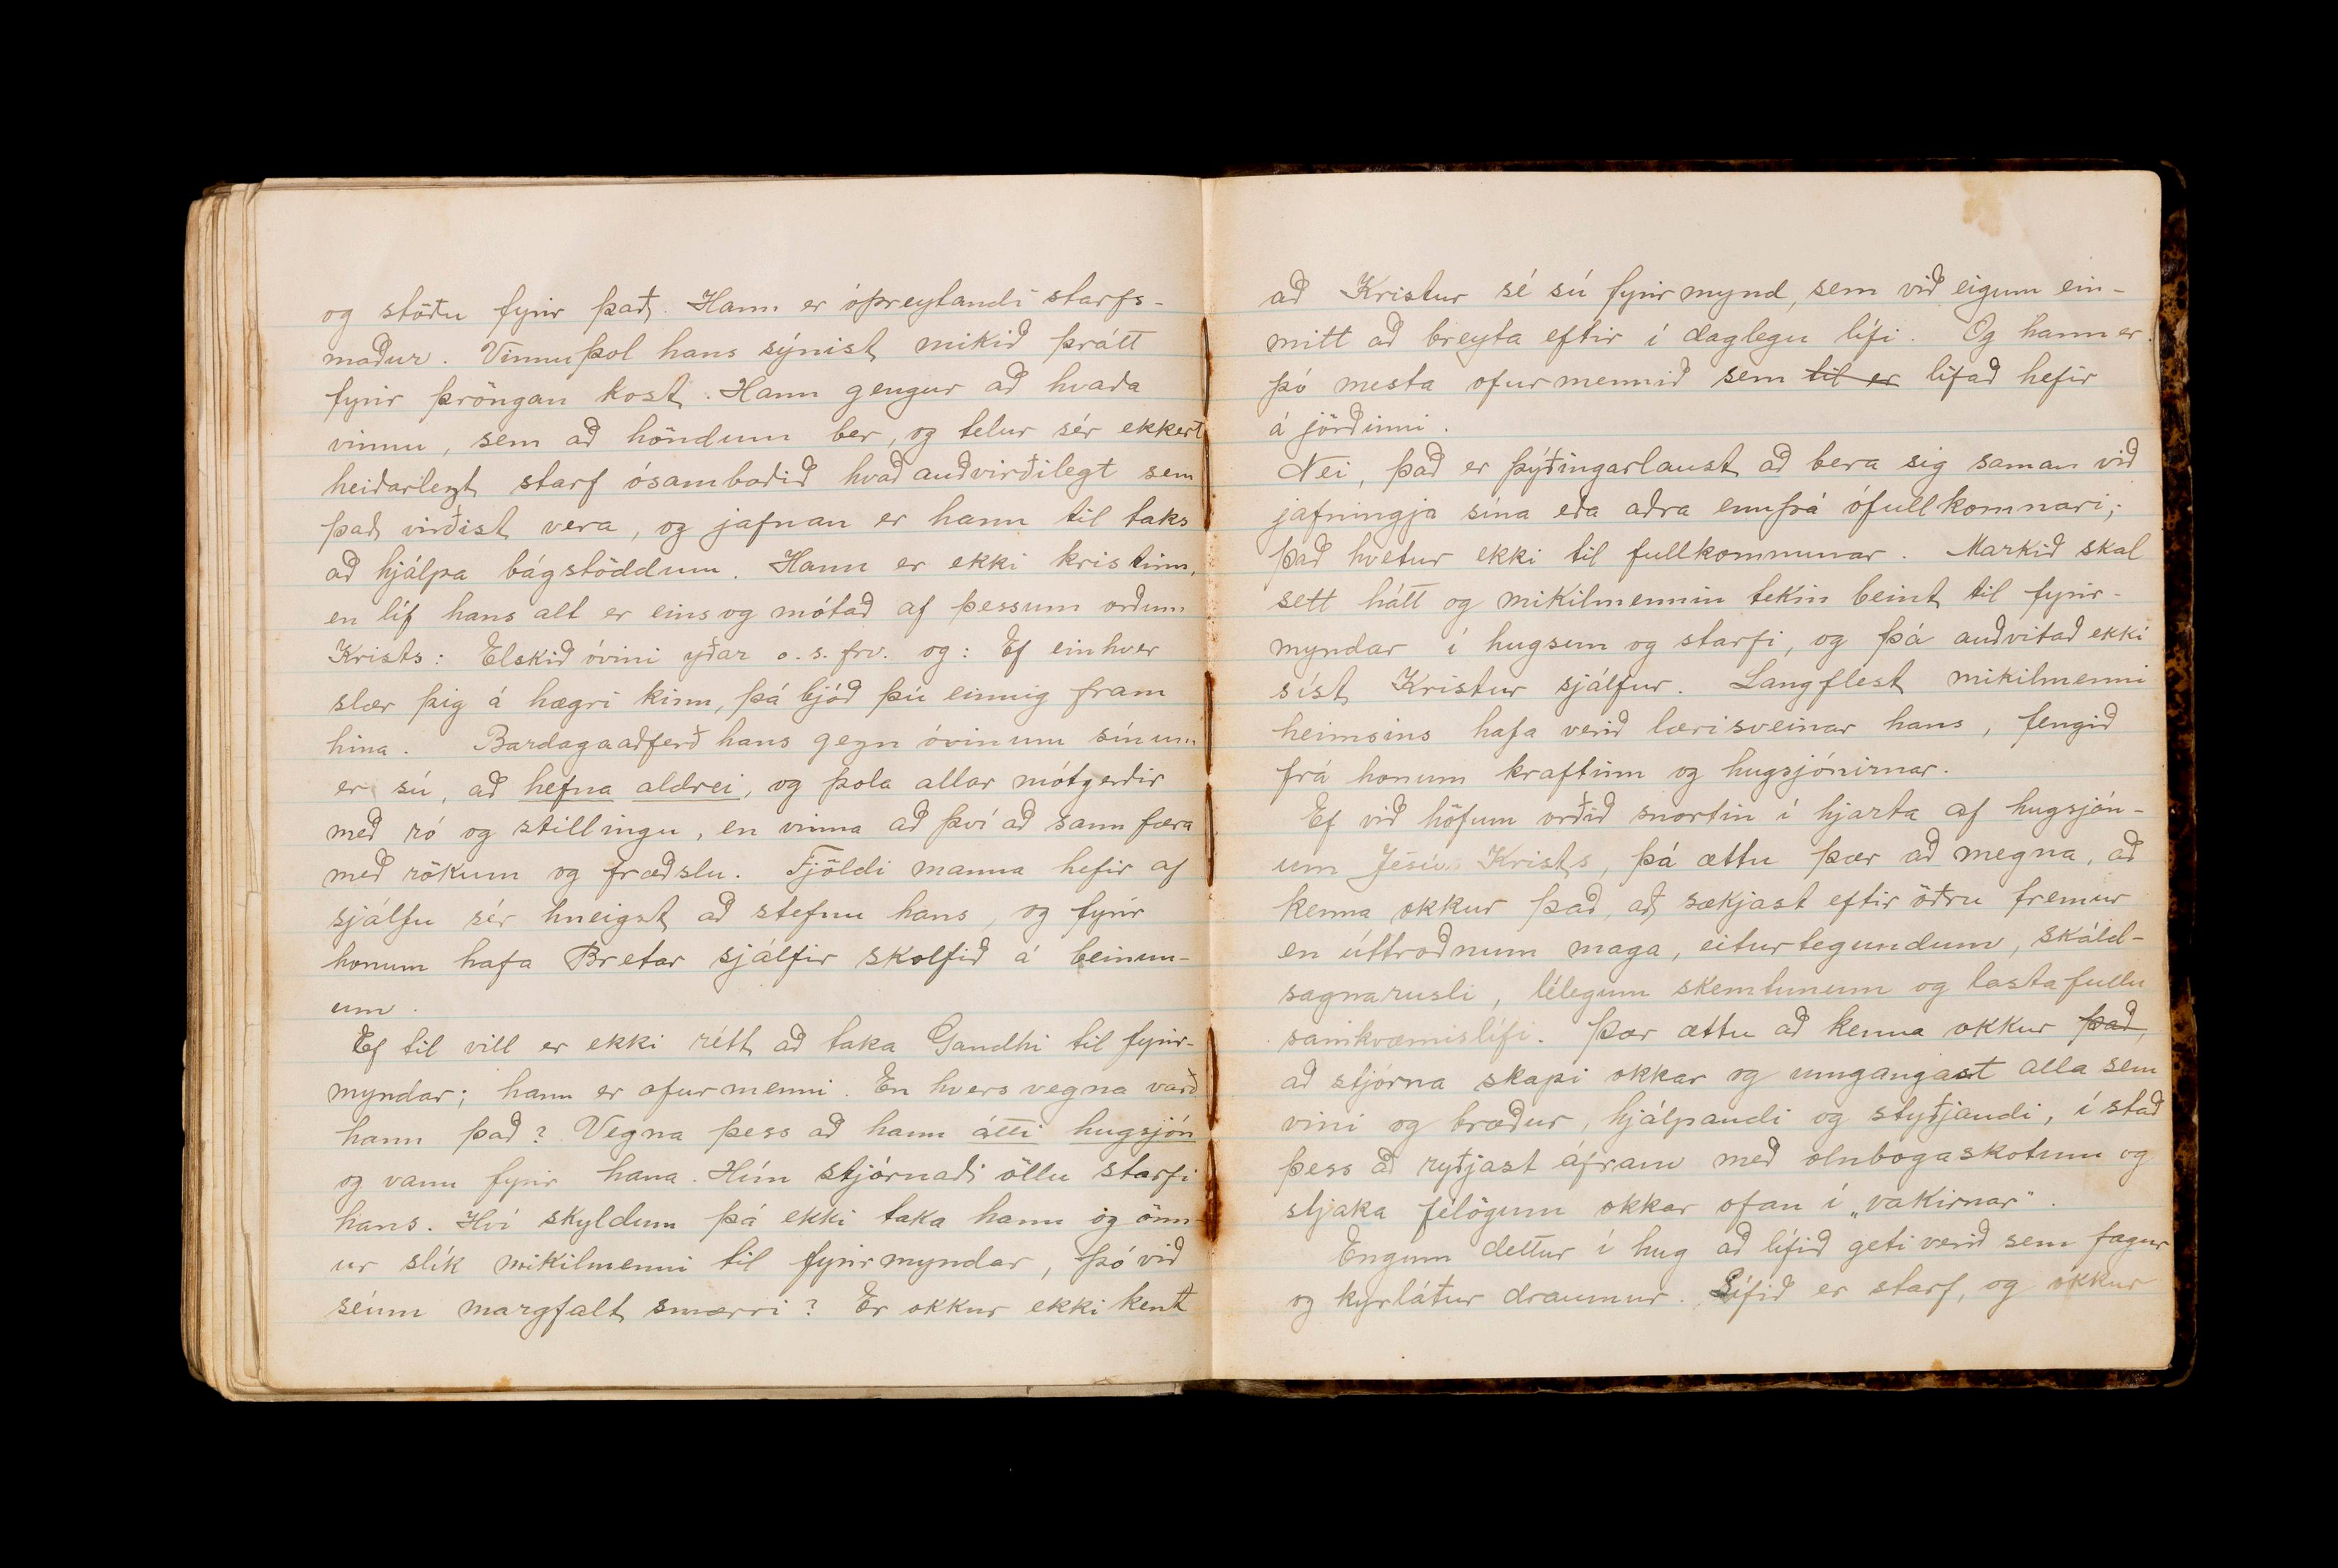 og stöðu fyrir það. Hann er óþreytandi starfs-
maður. Vinnuþol hans sýnist mikið þrátt
fyrir þröngan kost. Hann gengur að hvaða
vinnu, sem að höndum ber, og telur sér ekkert
heiðarlegt starf ósamboðið hvað auðvirðilegt sem
það virðist vera, og jafnan er hann til taks
að hjálpa bágstöddum. Hann er ekki kristinn,
en líf hans alt er eins og mótað af þessum orðum
Krists: Elskið óvini yðar o.s.frv. og: Ef einhver
slær þig á hægri kinn, þá bjóð þú einnig fram
hina. Bardagaaðferð hans gegn óvinum sínum
er sú, að hefna aldrei, og þola allar mótgerðir
með ró og stillingu, en vinna að því að sannfæra
með rökum og fræðslu. Fjöldi manna hefir af
sjálfu sér hneigst að stefnu hans, og fyrir
honum hafa Bretar sjálfir skolfið á beinun-
um.
Ef til vill er ekki rétt að taka Gandhi til fyrir-
myndar; hann er ofurmenni. En hvers vegna varð
hann það? Vegna þess að hann átti hugsjón
og vann fyrir hana. Hún stjórnaði öllu starfi
hans. Hví skyldum þá ekki taka hann og önn-
ur slík mikilmenni til fyrirmyndar, þó við
séum margfalt smærri? Er okkur ekki kent
að Kristur sé sú fyrirmynd, sem við eigum ein-
mitt að breyta eftir í daglegu lífi. Og hann er
þó mesta ofurmennið sem til er lifað hefir
á jörðinni.
Nei, það er þýðingarlaust að bera sig saman við
jafningja sína eða aðra ennþá ófullkomnari;
það hvetur ekki til fullkomnunar. Markið skal
sett hátt og mikilmennin tekin beint til fyrir-
myndar í hugsun og starfi, og þá auðvitað ekki
síst Kristur sjálfur. Langflest mikilmenni
heimsins hafa verið lærisveinar hans, fengið
frá honum kraftinn og hugsjónirnar.
Ef við höfum orðið snortin í hjarta af hugsjón-
um Jesús Krists, þá ættu þær að megna, að
kenna okkur það, að sækjast eftir öðru fremur
en úttroðnum maga, eiturtegundum, skáld-
sagnarusli, lélegum skemtunum og lastafullu
samkvæmislífi. Þær ættu að kenna okkur það,
að stjórna skapi okkar og umgangast alla sem
vini og bræður, hjálpandi og styðjandi, í stað
þess að ryðjast áfram með olnbogaskotum og
stjaka félögum okkar ofan í „vakirnar".
Engum dettur í hug að lífið geti verið sem fagur
og kyrlátur draumur. Lífið er starf, og okkur